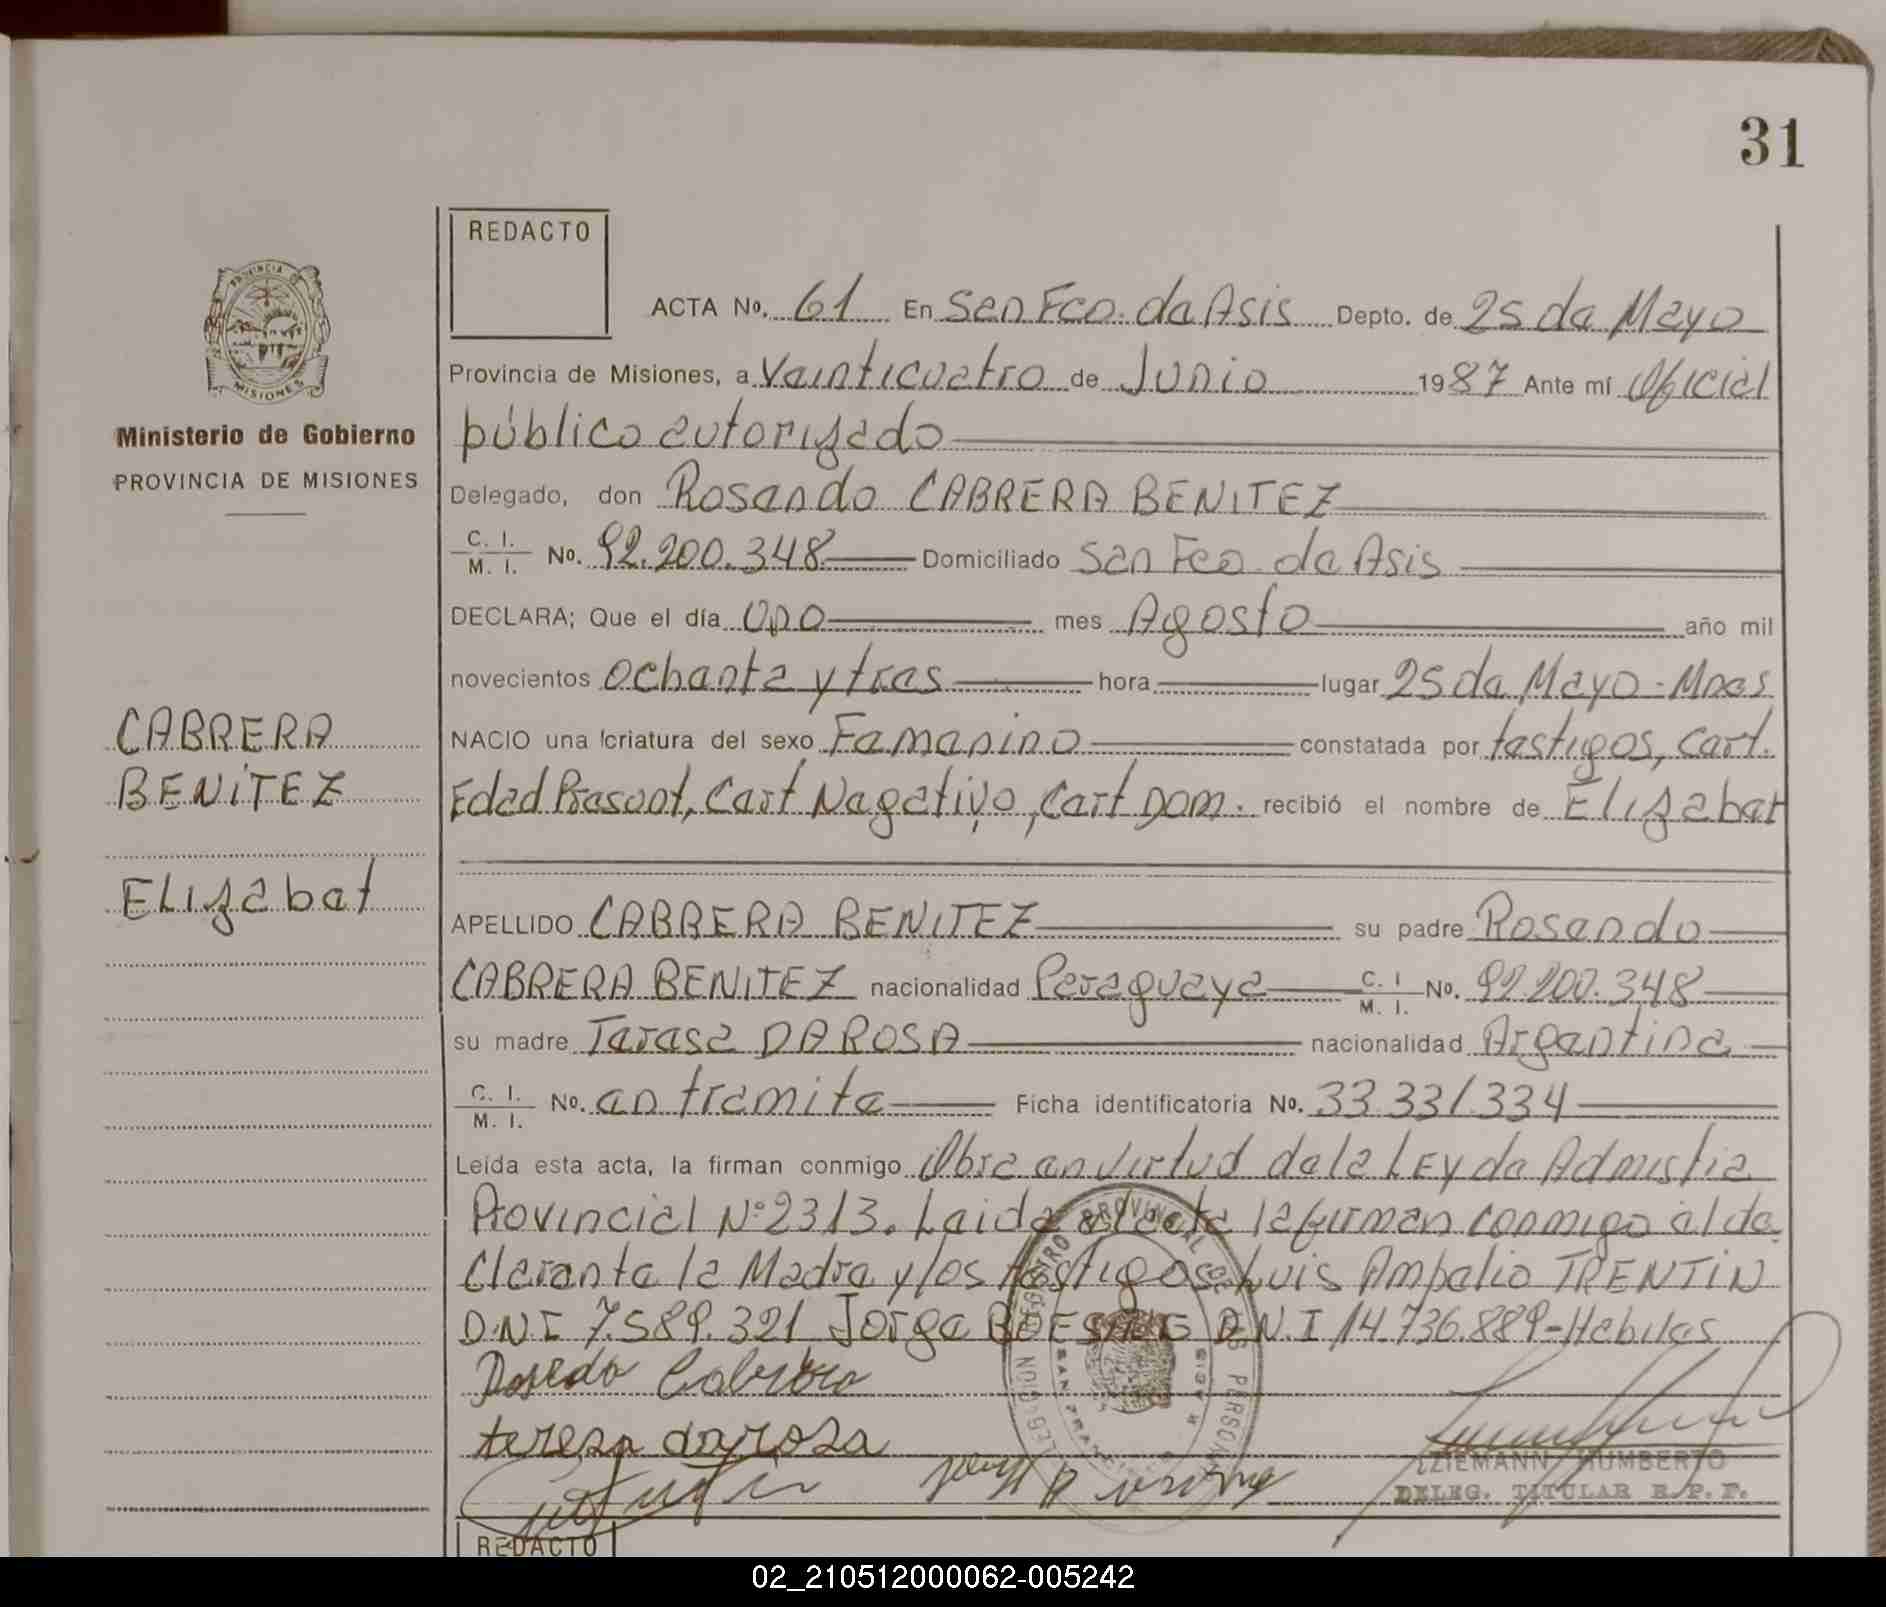 31
REDACTO
ACTA No. 61 En San Fco. de Asis Depto. de 25 de Mayo
Provincia de Misiones, a Veinticuatro de Junio 1987 Ante mí Oficial
público autorizado
Delegado, don Rosendo CABRERA BENITEZ
C. I. M. I. No. 92.200.348 Domiciliado San Fco. de Asis
DECLARA; Que el día Uno mes Agosto año mil
novecientos Ochenta y tres hora lugar 25 de Mayo - Mnes
NACIO una criatura del sexo Femenino constatada por testigos, Cert.
Edad Presunt, Cert Negativo, Cert Dom. recibió el nombre de Elizabet
APELLIDO CABRERA BENITEZ su padre Rosendo
CABRERA BENITEZ nacionalidad Paraguaya C. I. M. I. No. 92.200.348
su madre Teresa DA ROSA nacionalidad Argentina
C. I. M. I. No. en tramite Ficha identificatoria No. 33 33/334
Leída esta acta, la firman conmigo Obra en virtud de la LEy de Admistia
Provincial Nº 2313. Leida el acta la firman conmigo el de
clarante la Madre y los testigos Luis Ampelio TRENTIN
D.N.I 7.589.321 Jorge D.N.I 14.736.889-Habiles
Rosendo Cabrera
teresa da rosa
ZIEMANN HUMBERTO
DELEG. TITULAR R. P. P.
REDACTO
PROVINCIA DE
MISIONES
Ministerio de Gobierno
PROVINCIA DE MISIONES
CABRERA
BENÍTEZ
Elizabet
REGISTRO PROVINCIAL DE LAS PERSONAS
DELEGACION
SAN FRANCISCO
02_210512000062-005242